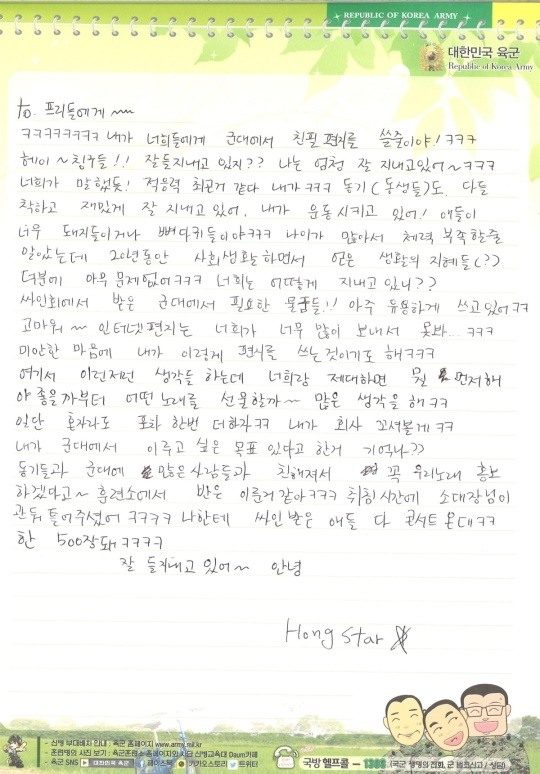 REPUBLIC OF KOREA ARMY
대한민국 육군
Republic of Korea Army
to. 프리들에게 ~~
ㅋㅋㅋㅋㅋㅋㅋㅋ 내가 너희들에게 군대에서 친필 편지를 쓸줄이야! ㅋㅋㅋ
헤이~ 친구들!! 잘들지내고 있지?? 나는 엄청 잘 지내고있어~ㅋㅋㅋ
너희가 말했듯! 적응력 최고인거 같다 내가ㅋㅋㅋ 동기(동생들)도 다들
착하고 재밌게 잘 지내고 있어. 내가 운동시키고 있어! 애들이
너무 돼지들이거나 뼈다귀들이야ㅋㅋㅋ 나이가 많아서 체력 부족할줄
알았는데 20년동안 사회생활하면서 얻은 생활의 지혜들(?)
덕분에 아무 문제없어ㅋㅋㅋ 너희는 어떻게 지내고 있니??
싸인회에서 받은 군대에서 필요한 물품들!! 아주 유용하게 쓰고있어ㅋㅋ
고마워~ 인터넷편지는 너희가 너무 많이 보내서 못봐... ㅋㅋㅋ
미안한 마음에 내가 이렇게 편지를 쓰는것이기도 해ㅋㅋㅋ
여기서 이런저런 생각들 하는데 너희랑 제대하면 뭘 먼저해
야 좋을까부터 어떤노래를 선물할까~ 많은 생각을 해ㅋㅋ
일단 혼자라도 포차 한번 더하자ㅋㅋ 내가 회사 꼬셔볼게ㅋㅋ
내가 군대에서 이루고 싶은 목표 있다고 한거 기억나??
동기들과 군대에 많은 사람들과 친해져서 꼭 우리노래 홍보
하겠다고~ 훈련소에서 반은 이룬거 같아ㅋㅋㅋ 취침시간에 소대장님이
관둬 틀어주셨어 ㅋㅋㅋㅋ 나한테 싸인받은 애들 다 콘서트 온대ㅋㅋ
한 500장돼ㅋㅋㅋㅋ
잘 들지내고 있어~ 안녕
Hong Star
- 신병 부대배치 안내 : 육군 홈페이지 www.army.mil.kr
- 훈련병의 사진 보기 : 육군훈련소 홈페이지와 사단 신병교육대 Daum카페
- 육군 SNS 대한민국 육군 페이스북 카카오스토리 트위터
국방 헬프콜 - 1303